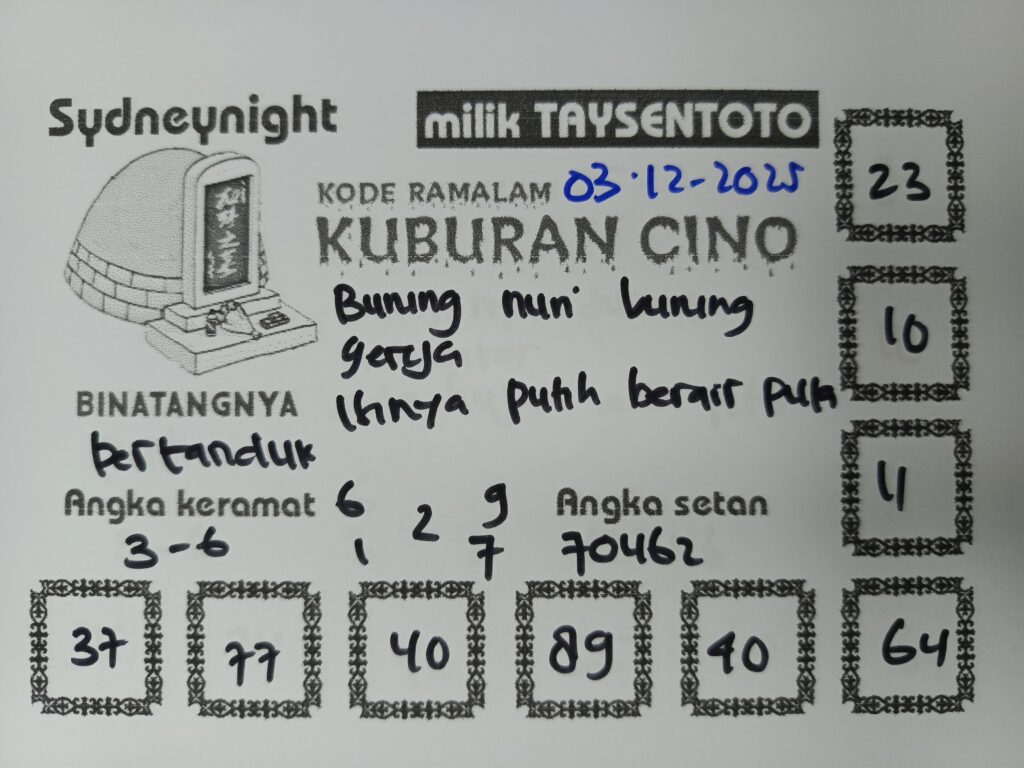 Sydneynight
milik TAYSENTOTO
KODE RAMALAM 03.12-2025
KUBURAN CINO
Burung nuri burung
gereja
Isinya putih berair pula
BINATANGNYA
bertanduk
Angka keramat
3-6
6 9
2
1 7
Angka setan
70462
23
10
11
37
77
40
89
40
64